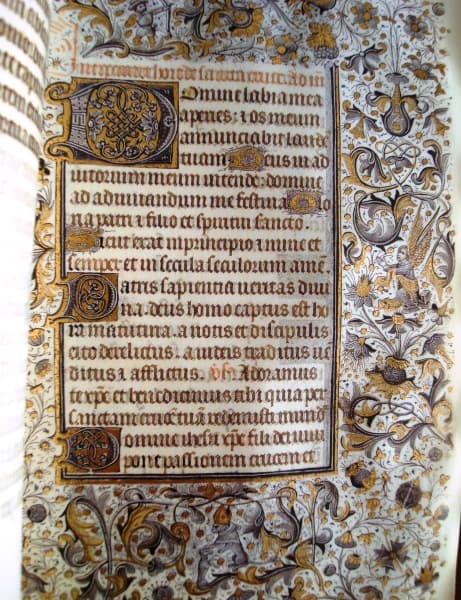 Incipiunt hore de sancta cruce Ad m
Domine labia mea
aperies: ⁊ os meum
annunciabit laud
tuam Deus in ad
iutorium meum intende: domine
ad adiuuandum me festina Glo
ria patri ⁊ filio et spiritui sancto.
Sicut erat in principio ⁊ nunc et
semper et in secula seculorum ame.
Patris sapientia ueritas diui
na: deus homo captus est ho
ra matutina. a notis et discipulis
cito derelictus: a iudeis traditus ue
ditus ⁊ afflictus. Adoramus
te xp̄e et benedicimus tibi quia per
sanctam crucē tuā redemisti mund
Domine ihesu xp̄e fili dei uiui
pone passionem crucem et